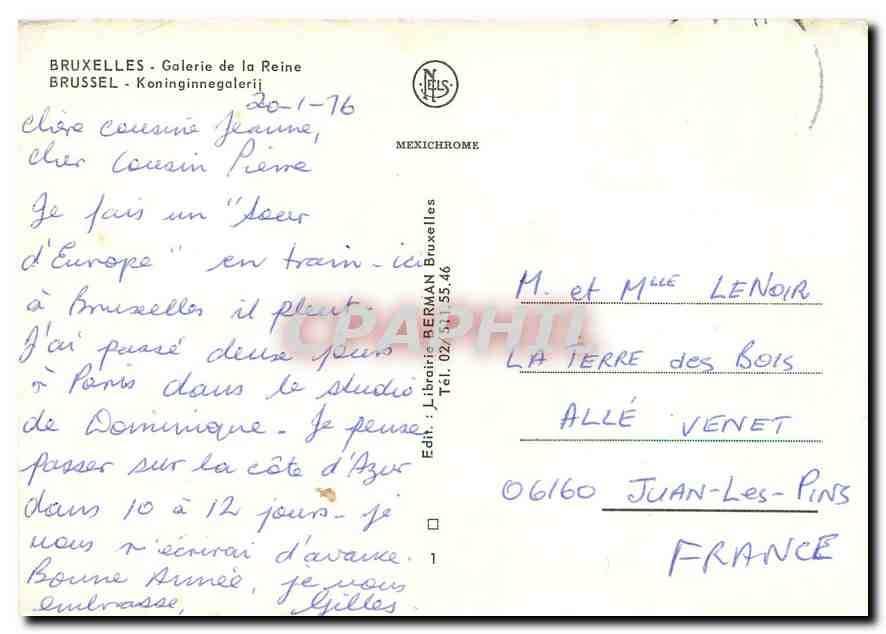 BRUXELLES - Galerie de la Reine
BRUSSEL - Koninginnegalerij
NELS
MEXICHROME
20-1-76
Chère cousine Jeanne,
cher cousin Pierre
Je fais un "tour
d'Europe" en train - ici
à Bruxelles il pleut.
J'ai passé deux jours
à Paris dans le studio
de Dominique - Je pense
passer sur la côte d'Azur
dans 10 à 12 jours - je
vous écrirai d'avance.
Bonne Année, je vous
embrasse, Gilles.
Edit. : Librairie BERMAN Bruxelles
Tél. 02/511.55.46
1
CPAPHIL
M. et Mlle LENOIR
LA TERRE des BOIS
ALLÉ VENET
06160 JUAN-LES-PINS
FRANCE